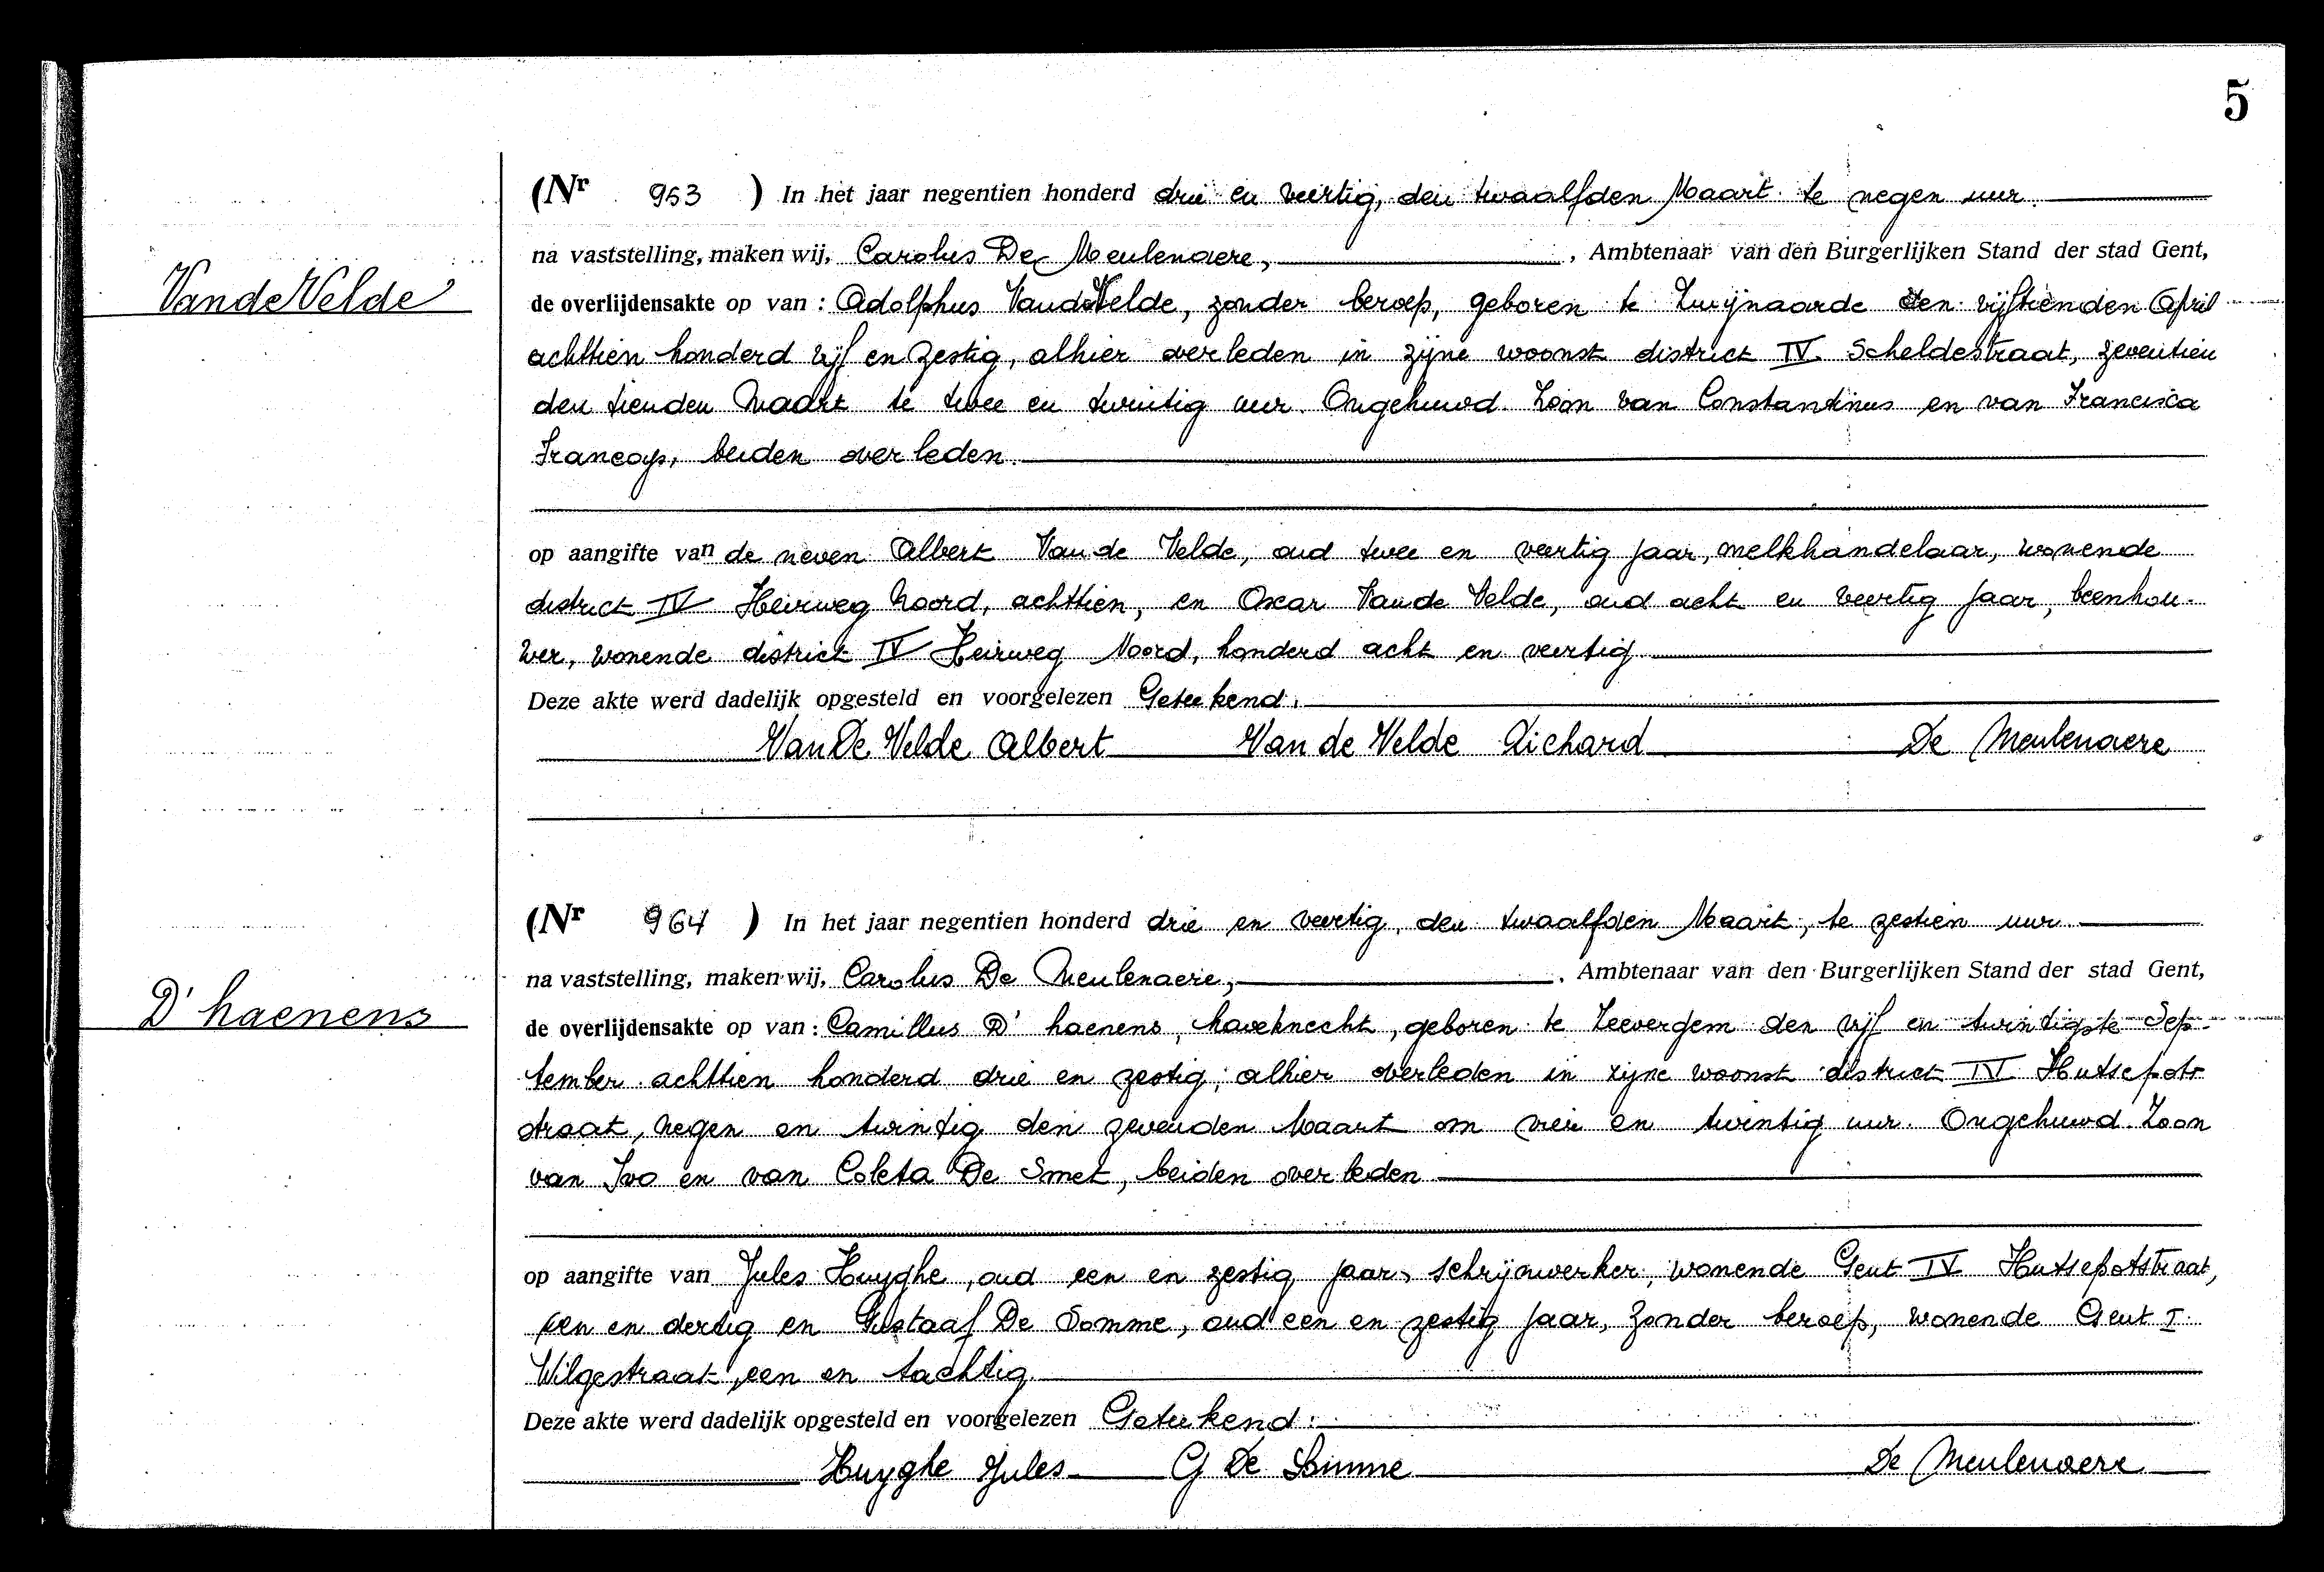 5
(Nr 953 ) In het jaar negentien honderd drie en veertig, den twaalfden Maart te negen uur.
na vaststelling, maken wij, Carolus De Meulenaere, , Ambtenaar van den Burgerlijken Stand der stad Gent,
VandeVelde
de overlijdensakte op van : Adolphus VandeVelde, zonder beroep, geboren te Zwijnaarde den vijftienden April
achttien honderd vijf en zestig, alhier overleden in zijne woonst district IV Scheldestraat, zeventien
den tienden Maart te twee en twintig uur. Ongehuwd. Zoon van Constantinus en van Francisca
Francoys, beiden overleden.
op aangifte van de neven Albert Van de Velde, oud twee en veertig jaar, melkhandelaar, wonende
district IV Heirweg Noord, achttien, en Oscar Van de Velde, oud acht en veertig jaar, beenhou-
wer, wonende district IV Heirweg Noord, honderd acht en veertig
Deze akte werd dadelijk opgesteld en voorgelezen Geteekend.
Van De Velde Albert Van de Velde Richard De Meulenaere
(Nr 964 ) In het jaar negentien honderd drie en veertig, den twaalfden Maart, te zestien uur.
na vaststelling, maken wij, Carolus De Meulenaere, , Ambtenaar van den Burgerlijken Stand der stad Gent,
D'haenens
de overlijdensakte op van : Camillus D'haenens, haveknecht, geboren te Zeevergem den vijf en twintigste Sep-
tember achttien honderd drie en zestig, alhier overleden in zijne woonst district IV Hutsepot-
straat, negen en twintig den zevenden Maart om vier en twintig uur. Ongehuwd. Zoon
van Ivo en van Coleta De Smet, beiden overleden
op aangifte van Jules Huyghe, oud een en zestig jaar, schrijnwerker, wonende Gent IV Hutsepotstraat,
een en dertig en Gustaaf De Somme, oud een en zestig jaar, zonder beroep, wonende Gent I
Wilgestraat, een en tachtig
Deze akte werd dadelijk opgesteld en voorgelezen Geteekend:
Huyghe Jules G De Somme De Meulenaere